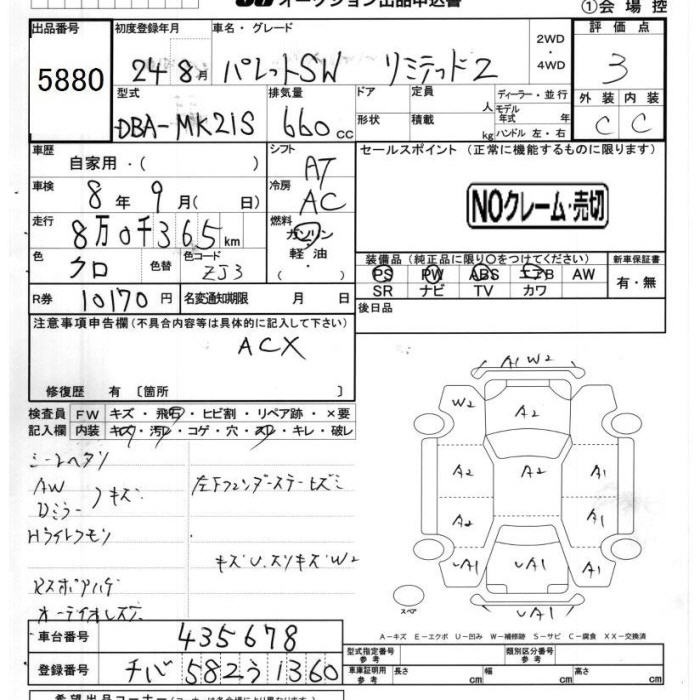 オークション出品申込書
①会場控
出品番号 初度登録年月 車名・グレード 2WD・4WD 評価点
5880 24 8月 パレットSW リミテッド2 3
型式 排気量 ドア 定員 人 ディーラー・並行 外装 内装
DBA-MK21S 660cc 形状 積載 kg モデル年式 年 ハンドル 左・右 C C
車歴 自家用・( ) シフト AT セールスポイント (正常に機能するものに限ります)
車検 8年 9月( 日) 冷房 AC NOクレーム・売切
走行 8万0千365km 燃料 ガソリン・軽油
色 クロ 色替 色コード ZJ3 装備品 (純正品に限り○をつけてください) 新車保証書
PS PW ABS エアB AW 有・無
SR ナビ TV カワ
R券 10170円 名変通知期限 月 日 後日品
注意事項申告欄 (不具合内容等は具体的に記入して下さい)
ACX
修復歴 有 〔箇所 〕
検査員 FW キズ・飛石・ヒビ割・リペア跡・×要
記入欄 内装 キズ・汚れ・コゲ・穴・スレ・キレ・破レ
シートヘタリ
AW
Dミラー キズ 左Fフェンダーステー ヒズミ
Hライトクモリ
キズU.スリキズW2
オーディオレス
A1 W2
W2 A2
A2 A2 A1
A2 A1
UA1 UA1 A1
UA1
スペア
A-キズ E-エクボ U-凹み W-補修跡 S-サビ C-腐食 XX-交換済
車台番号 435678 型式指定番号 参考 類別区分番号 参考
登録番号 チバ 582 う 1360 車庫証明用 参考 長さ cm 幅 cm 高さ cm
希望出品コーナー